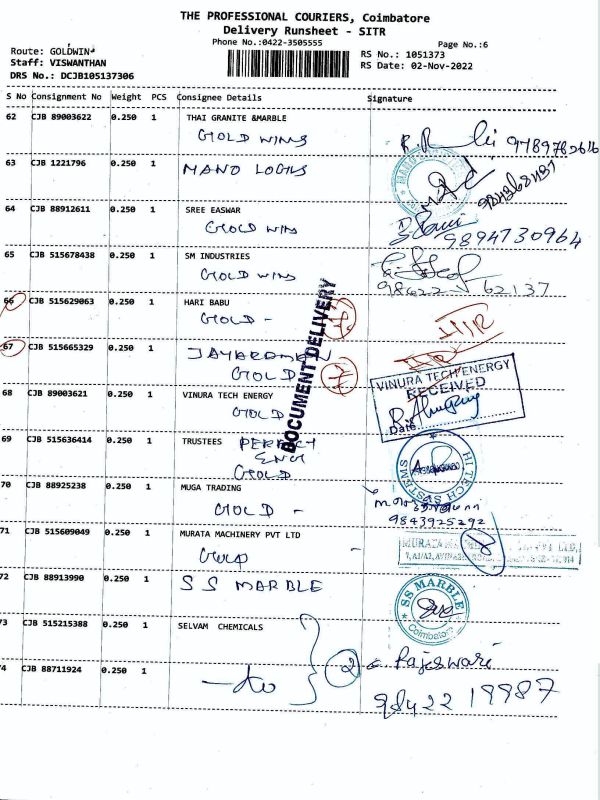 THE PROFESSIONAL COURIERS, Coimbatore
Delivery Runsheet - SITR
Phone No.:0422-3505555
Page No.:6
Route: GOLDWINS
RS No.: 1051373
Staff: VISWANTHAN
RS Date: 02-Nov-2022
DRS No.: DCJB105137306
S No Consignment No Weight PCS Consignee Details Signature
62 CJB 89003622 0.250 1 THAI GRANITE &MARBLE
GOLD WINS
63 CJB 1221796 0.250 1 MANO LOGUS
64 CJB 88912611 0.250 1 SREE EASWAR
GOLD WIN
9894730964
65 CJB 515678438 0.250 1 SM INDUSTRIES
GOLD WINS
98422 62137
66 CJB 515629063 0.250 1 HARI BABU
GOLD -
DOCUMENT DELIVERY
67 CJB 515665329 0.250 1 JAYARAMAN
GOLD
68 CJB 89003621 0.250 1 VINURA TECH ENERGY
GOLD
VINURA TECH ENERGY
RECEIVED
Date:
69 CJB 515636414 0.250 1 TRUSTEES PERFECT
ENGI
GOLD
HI TECH SYSTEMS
70 CJB 88925238 0.250 1 MUGA TRADING
GOLD -
9843925292
71 CJB 515609049 0.250 1 MURATA MACHINERY PVT LTD
GOLD
72 CJB 88913990 0.250 1 S S MARBLE
SS MARBLE
Coimbatore
73 CJB 515215388 0.250 1 SELVAM CHEMICALS
2 G. Rajeswari
74 CJB 88711924 0.250 1 - do
98422 19987